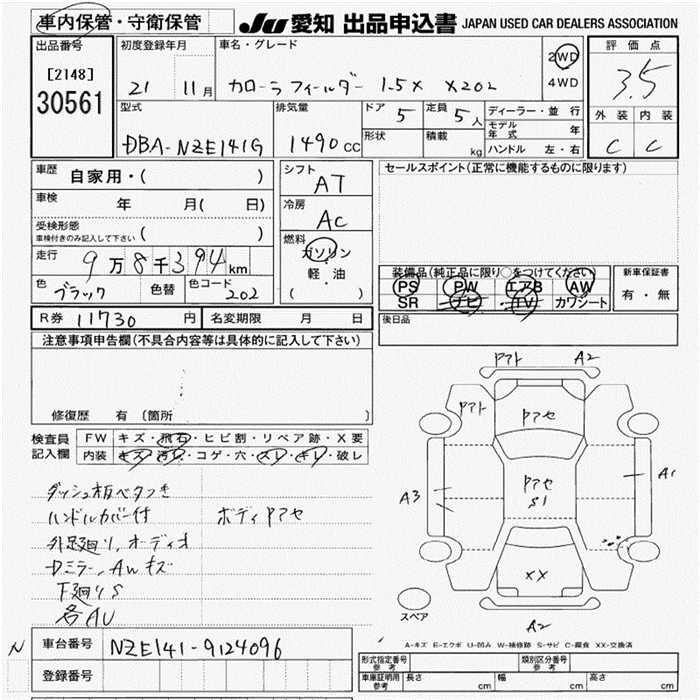 車内保管・守衛保管 JU 愛知 出品申込書 JAPAN USED CAR DEALERS ASSOCIATION
出品番号 初度登録年月 車名・グレード 2WD 4WD 評価点
[2148] 30561 21 11月 カローラ フィールダー 1.5X X202 3.5
型式 排気量 ドア 5 定員 5人 ディーラー・並行 外装 内装
DBA-NZE141G 1490cc 形状 積載 kg モデル年式 年 C C
ハンドル 左・右
車歴 自家用・( ) シフト AT セールスポイント(正常に機能するものに限ります)
車検 年 月( 日) 冷房 AC
受検形態 車検付きのみ記入して下さい ( ) 燃料 ガソリン 軽・油 ( )
走行 9万8千394km 装備品(純正品に限り○をつけてください) 新車保証書
色 ブラック 色替 色コード 202 PS PW エアB AW 有・無
SR ナビ TV カワシート
R券 11730円 名変期限 月 日 後日品
注意事項申告欄(不具合内容等は具体的に記入して下さい)
修復歴 有 [箇所
検査員記入欄 FW キズ・飛石・ヒビ割・リペア跡・X要
内装 キズ・汚れ・コゲ・穴・スレ・キレ・破レ
ダッシュ板ベタつき
ハンドルカバー付 ボディPアセ
外廻り,オーディオ
Dミラー,AWキズ
下廻りS
各AU
Pアト A2
Pアト Pアセ
A1
A3 Pアセ S1
XX
スペア A2
A-キズ E-エクボ U-凹み W-補修跡 S-サビ C-腐食 XX-交換済
N 車台番号 NZE141-9124096
登録番号
形式指定番号 参考 類別区分番号 参考
車庫証明用 参考 長さ cm 幅 cm 高さ cm